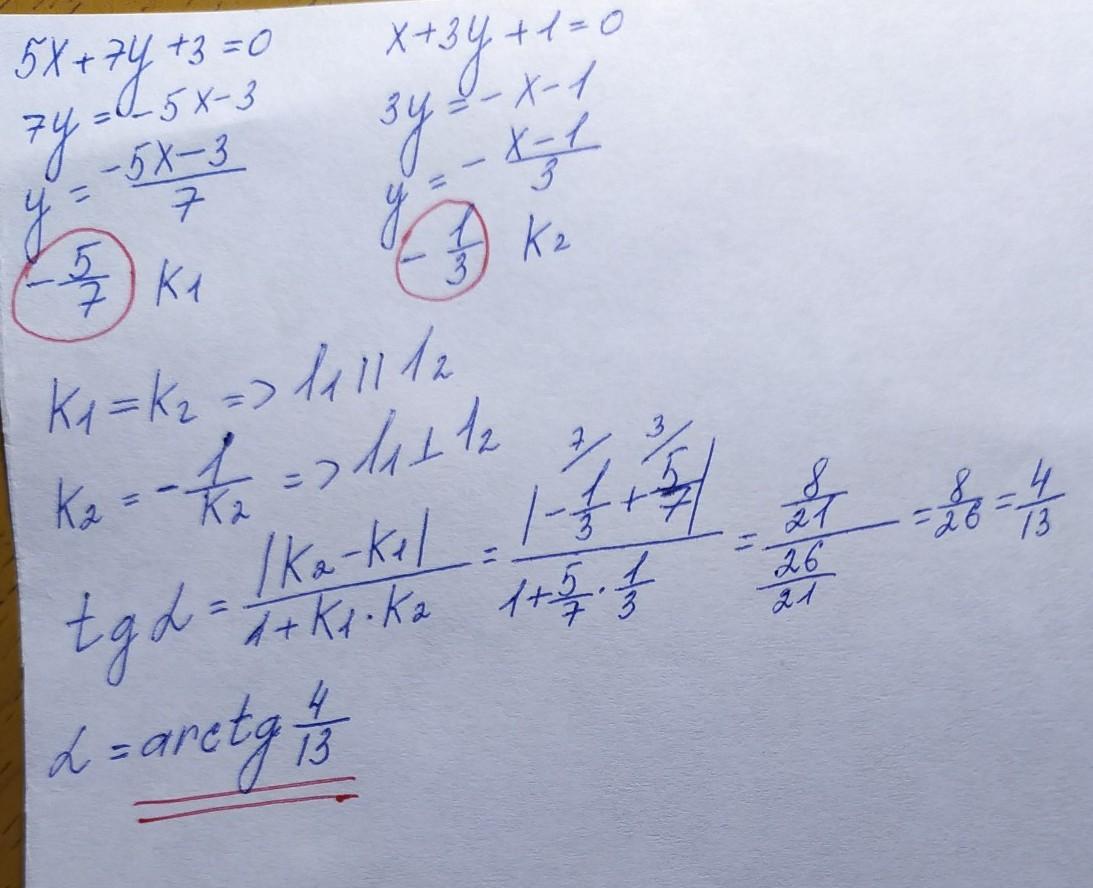 5x+7y+3=0
7y=-5x-3
y=\frac{-5x-3}{7}
-\frac{5}{7} K1
x+3y+1=0
3y=-x-1
y=-\frac{x-1}{3}
-\frac{1}{3} K2
K1=K2 => l1 || l2
K2=-\frac{1}{K2} => l1 ⊥ l2
tg α = \frac{|K2-K1|}{1+K1·K2} = \frac{|-\frac{1}{3}^{7/}+\frac{5}{7}^{3/}|}{1+\frac{5}{7}·\frac{1}{3}} = \frac{\frac{8}{21}}{\frac{26}{21}} = \frac{8}{26} = \frac{4}{13}
α = arctg \frac{4}{13}